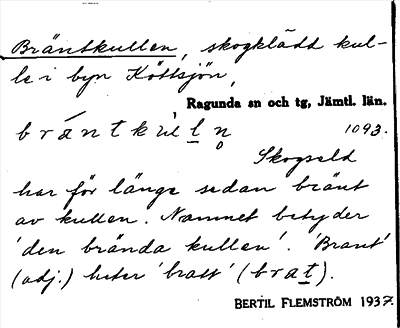 Bräntkullen, skogklädd kul-
le i byn Köttsjön,
Ragunda sn och tg, Jämtl. län.
brántkùlḷṇ 1093.
Skogseld
har för länge sedan bränt
av kullen. Namnet betyder
'den brända kullen'. 'Brant'
(adj.) heter 'bratt' (brat).
BERTIL FLEMSTRÖM 1937.